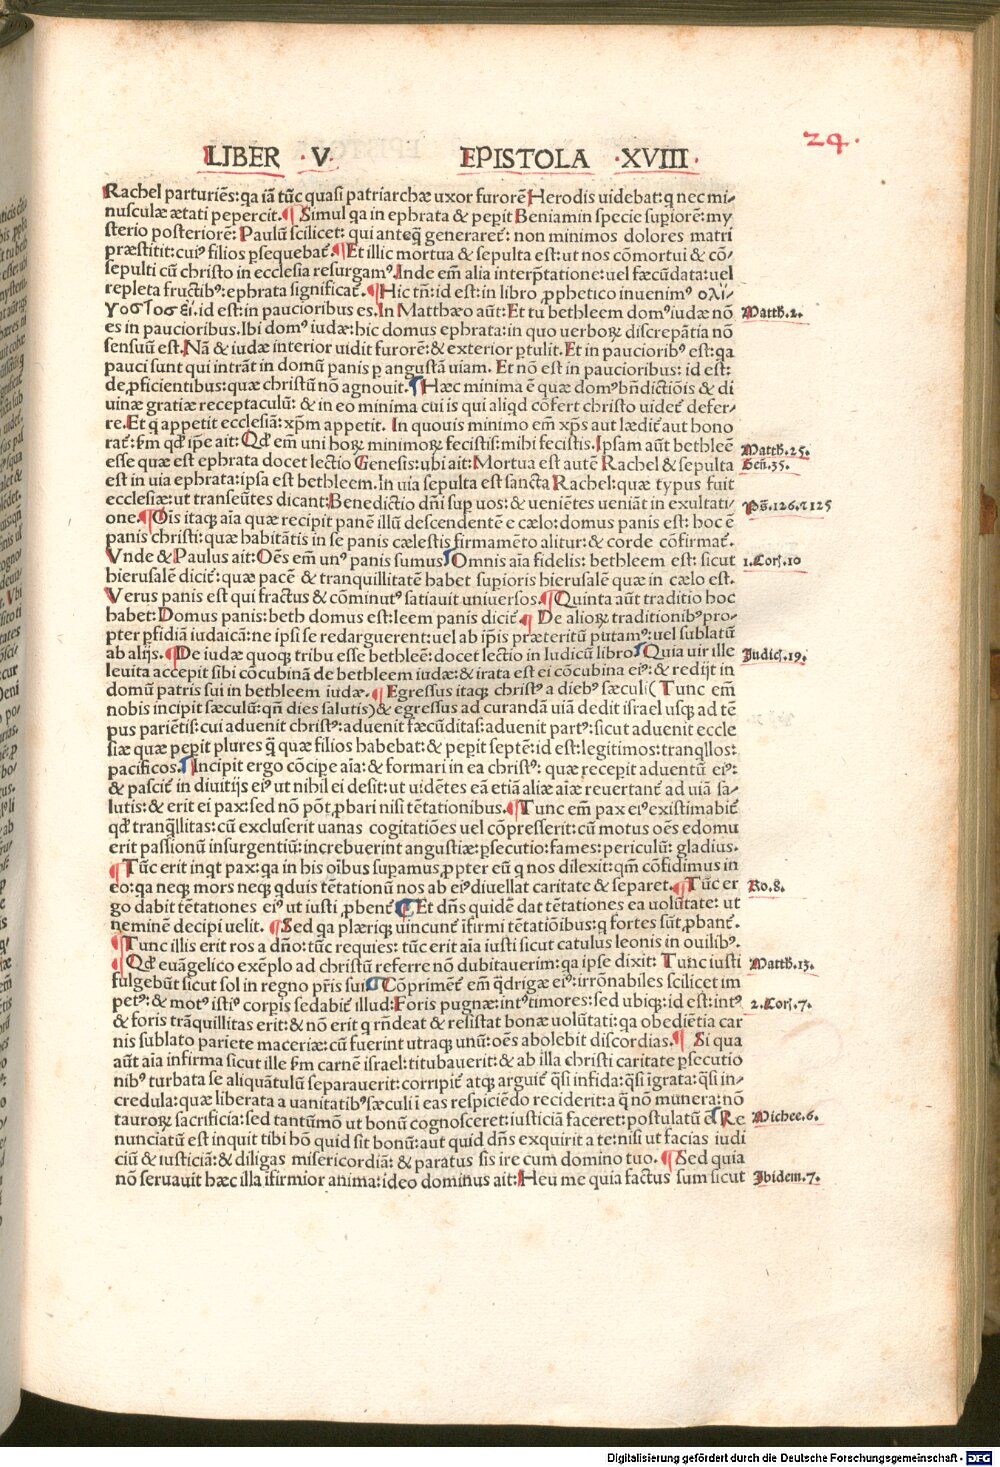 24.
LIBER ·V· EPISTOLA ·XVIII·
Rachel parturiēs: qa iā tūc quasi patriarchæ uxor furorē Herodis uidebat: q nec mi-
nusculæ ætati pepercit. ¶ Simul qa in ephrata & pepit Beniamin specie supiorē: my
sterio posteriorē: Paulū scilicet: qui anteq̄ generaret̄: non minimos dolores matri
præstitit: cuiꝰ filios psequebat̄. ¶ Et illic mortua & sepulta est: ut nos cōmortui & cō-
sepulti cū christo in ecclesia resurgamꝰ. Inde em̄ alia interp̄tatione: uel fæcūdata: uel
repleta fructibꝰ: ephrata significat̄. ¶ Hic tn̄: id est: in libro ꝓphetico inuenimꝰ ολί-
γοστοσ εἶ. id est: in paucioribus es. In Matthæo aūt: Et tu bethleem domꝰ iudæ nō
Matth.2.
es in paucioribus. Ibi domꝰ iudæ: hic domus ephrata: in quo uerboꝝ discrepātia nō
sensuū est. Nā & iudæ interior uidit furorē: & exterior ptulit. Et in paucioribꝰ est: qa
pauci sunt qui intrāt in domū panis p angustā uiam. Et nō est in paucioribus: id est:
de ꝓficientibus: quæ christū nō agnouit. ¶ Hæc minima ē quæ domꝰ bn̄dictiōis & di
uinæ gratiæ receptaculū: & in eo minima cui is qui aliqd cōfert christo uidet̄ defer-
re. Et q appetit ecclesiā: xp̄m appetit. In quouis minimo em̄ xp̄s aut lædit̄ aut hono
rat̄: s̄m qd̄ ip̄e ait: Qd̄ em̄ uni hoꝝ minimoꝝ fecistis: mihi fecistis. Ipsam aūt bethleē
Matth.25.
esse quæ est ephrata docet lectio Genesis: ubi ait: Mortua est autē Rachel & sepulta
Gen̄.35.
est in uia ephrata: ipsa est bethleem. In uia sepulta est sancta Rachel: quæ typus fuit
ecclesiæ: ut transeūtes dicant: Benedictio dn̄i sup uos: & ueniētes ueniāt in exultati-
Ps̄.126.⁊ 125
one. ¶ Ois itaq; aīa quæ recipit panē illū descendentē e cælo: domus panis est: hoc ē
panis christi: quæ habitātis in se panis cælestis firmamēto alitur: & corde cōfirmat̄.
Vnde & Paulus ait: Oēs em̄ unꝰ panis sumus ¶ Omnis aīa fidelis: bethleem est: sicut
1.Cor.10
hierusalē dicit̄: quæ pacē & tranquillitatē habet supioris hierusalē quæ in cælo est.
Verus panis est qui fractus & cōminutꝰ satiauit uniuersos. ¶ Quinta aūt traditio hoc
habet: Domus panis: beth domus est: leem panis dicit̄. ¶ De alioꝝ traditionibꝰ pro-
pter pfidiā iudaicā: ne ipsi se redarguerent: uel ab ip̄is præteritū putamꝰ: uel sublatū
ab alijs. ¶ De iudæ quoq; tribu esse bethleē: docet lectio in Iudicū libro ¶ Quia uir ille
Judic.19.
leuita accepit sibi cōcubinā de bethleem iudæ: & irata est ei cōcubina eiꝰ: & redijt in
domū patris sui in bethleem iudæ. ¶ Egressus itaq; christꝰ a diebꝰ sæculi (Tunc em̄
nobis incipit sæculū: qn̄ dies salutis) & egressus ad curandā uiā dedit israel usq; ad tē
pus pariētis: cui aduenit christꝰ: aduenit fæcūditas: aduenit partꝰ: sicut aduenit eccle
siæ quæ pepit plures q̄ quæ filios habebat: & pepit septē: id est: legitimos: tranqllos:
pacificos. ¶ Incipit ergo cōcipe aīa: & formari in ea christꝰ: quæ recepit aduentū eiꝰ:
& pascit̄ in diuitijs eiꝰ ut nihil ei desit: ut uidētes eā etiā aliæ aīæ reuertant̄ ad uiā sa-
lutis: & erit ei pax: sed nō pōt ꝓbari nisi tētationibus. ¶ Tunc em̄ pax eiꝰ existimabit̄
qd̄ tranqllitas: cū excluserit uanas cogitatiōes uel cōpresserit: cū motus oēs edomu
erit passionū insurgentiū: increbuerint angustiæ: psecutio: fames: periculū: gladius.
¶ Tūc erit inqt pax: qa in his oībus supamus ꝓpter eū q nos dilexit: qm̄ cōfidimus in
eo: qa neq; mors neq; qduis tētationū nos ab eiꝰ diuellat caritate & separet. ¶ Tūc er
Ro.8.
go dabit tētationes eiꝰ ut iusti ꝓbent̄ ¶ Et dn̄s quidē dat tētationes ea uolūtate: ut
neminē decipi uelit. ¶ Sed qa plæriq; uincunt̄ ifirmi tētatiōibus: q fortes sūt ꝓbant̄.
¶ Tunc illis erit ros a dn̄o: tūc requies: tūc erit aīa iusti sicut catulus leonis in ouilibꝰ.
¶ Qd̄ euāgelico exēplo ad christū referre nō dubitauerim: qa ipse dixit: Tunc iusti
Matth.13.
fulgebūt sicut sol in regno p̄ris sui ¶ Cōprimet̄ em̄ q̄drigæ eiꝰ: irrōnabiles scilicet im
petꝰ: & motꝰ istiꝰ corpis sedabit̄ illud: Foris pugnæ: intꝰ timores: sed ubiq; id est: intꝰ
2.Cor.7.
& foris trāquillitas erit: & nō erit q rn̄deat & resistat bonæ uolūtati: qa obediētia car
nis sublato pariete maceriæ: cū fuerint utraq; unū: oēs abolebit discordias. ¶ Si qua
aūt aīa infirma sicut ille s̄m carnē israel: titubauerit: & ab illa christi caritate psecutio
nibꝰ turbata se aliquātulū separauerit: corripit̄ atq; arguit̄ q̄si infida: q̄si igrata: q̄si in-
credula: quæ liberata a uanitatibꝰ sæculi ī eas respiciēdo reciderit: a q̄ nō munera: nō
tauroꝝ sacrificia: sed tantūmō ut bonū cognosceret: iusticiā faceret: postulatū ē ¶ Re
Michee.6.
nunciatū est inquit tibi hō quid sit bonū: aut quid dn̄s exquirit a te: nisi ut facias iudi
ciū & iusticiā: & diligas misericordiā: & paratus sis ire cum domino tuo. ¶ Sed quia
nō seruauit hæc illa ifirmior anima: ideo dominus ait: Heu me quia factus sum sicut
Ibidem.7.
Digitalisierung gefördert durch die Deutsche Forschungsgemeinschaft - DFG